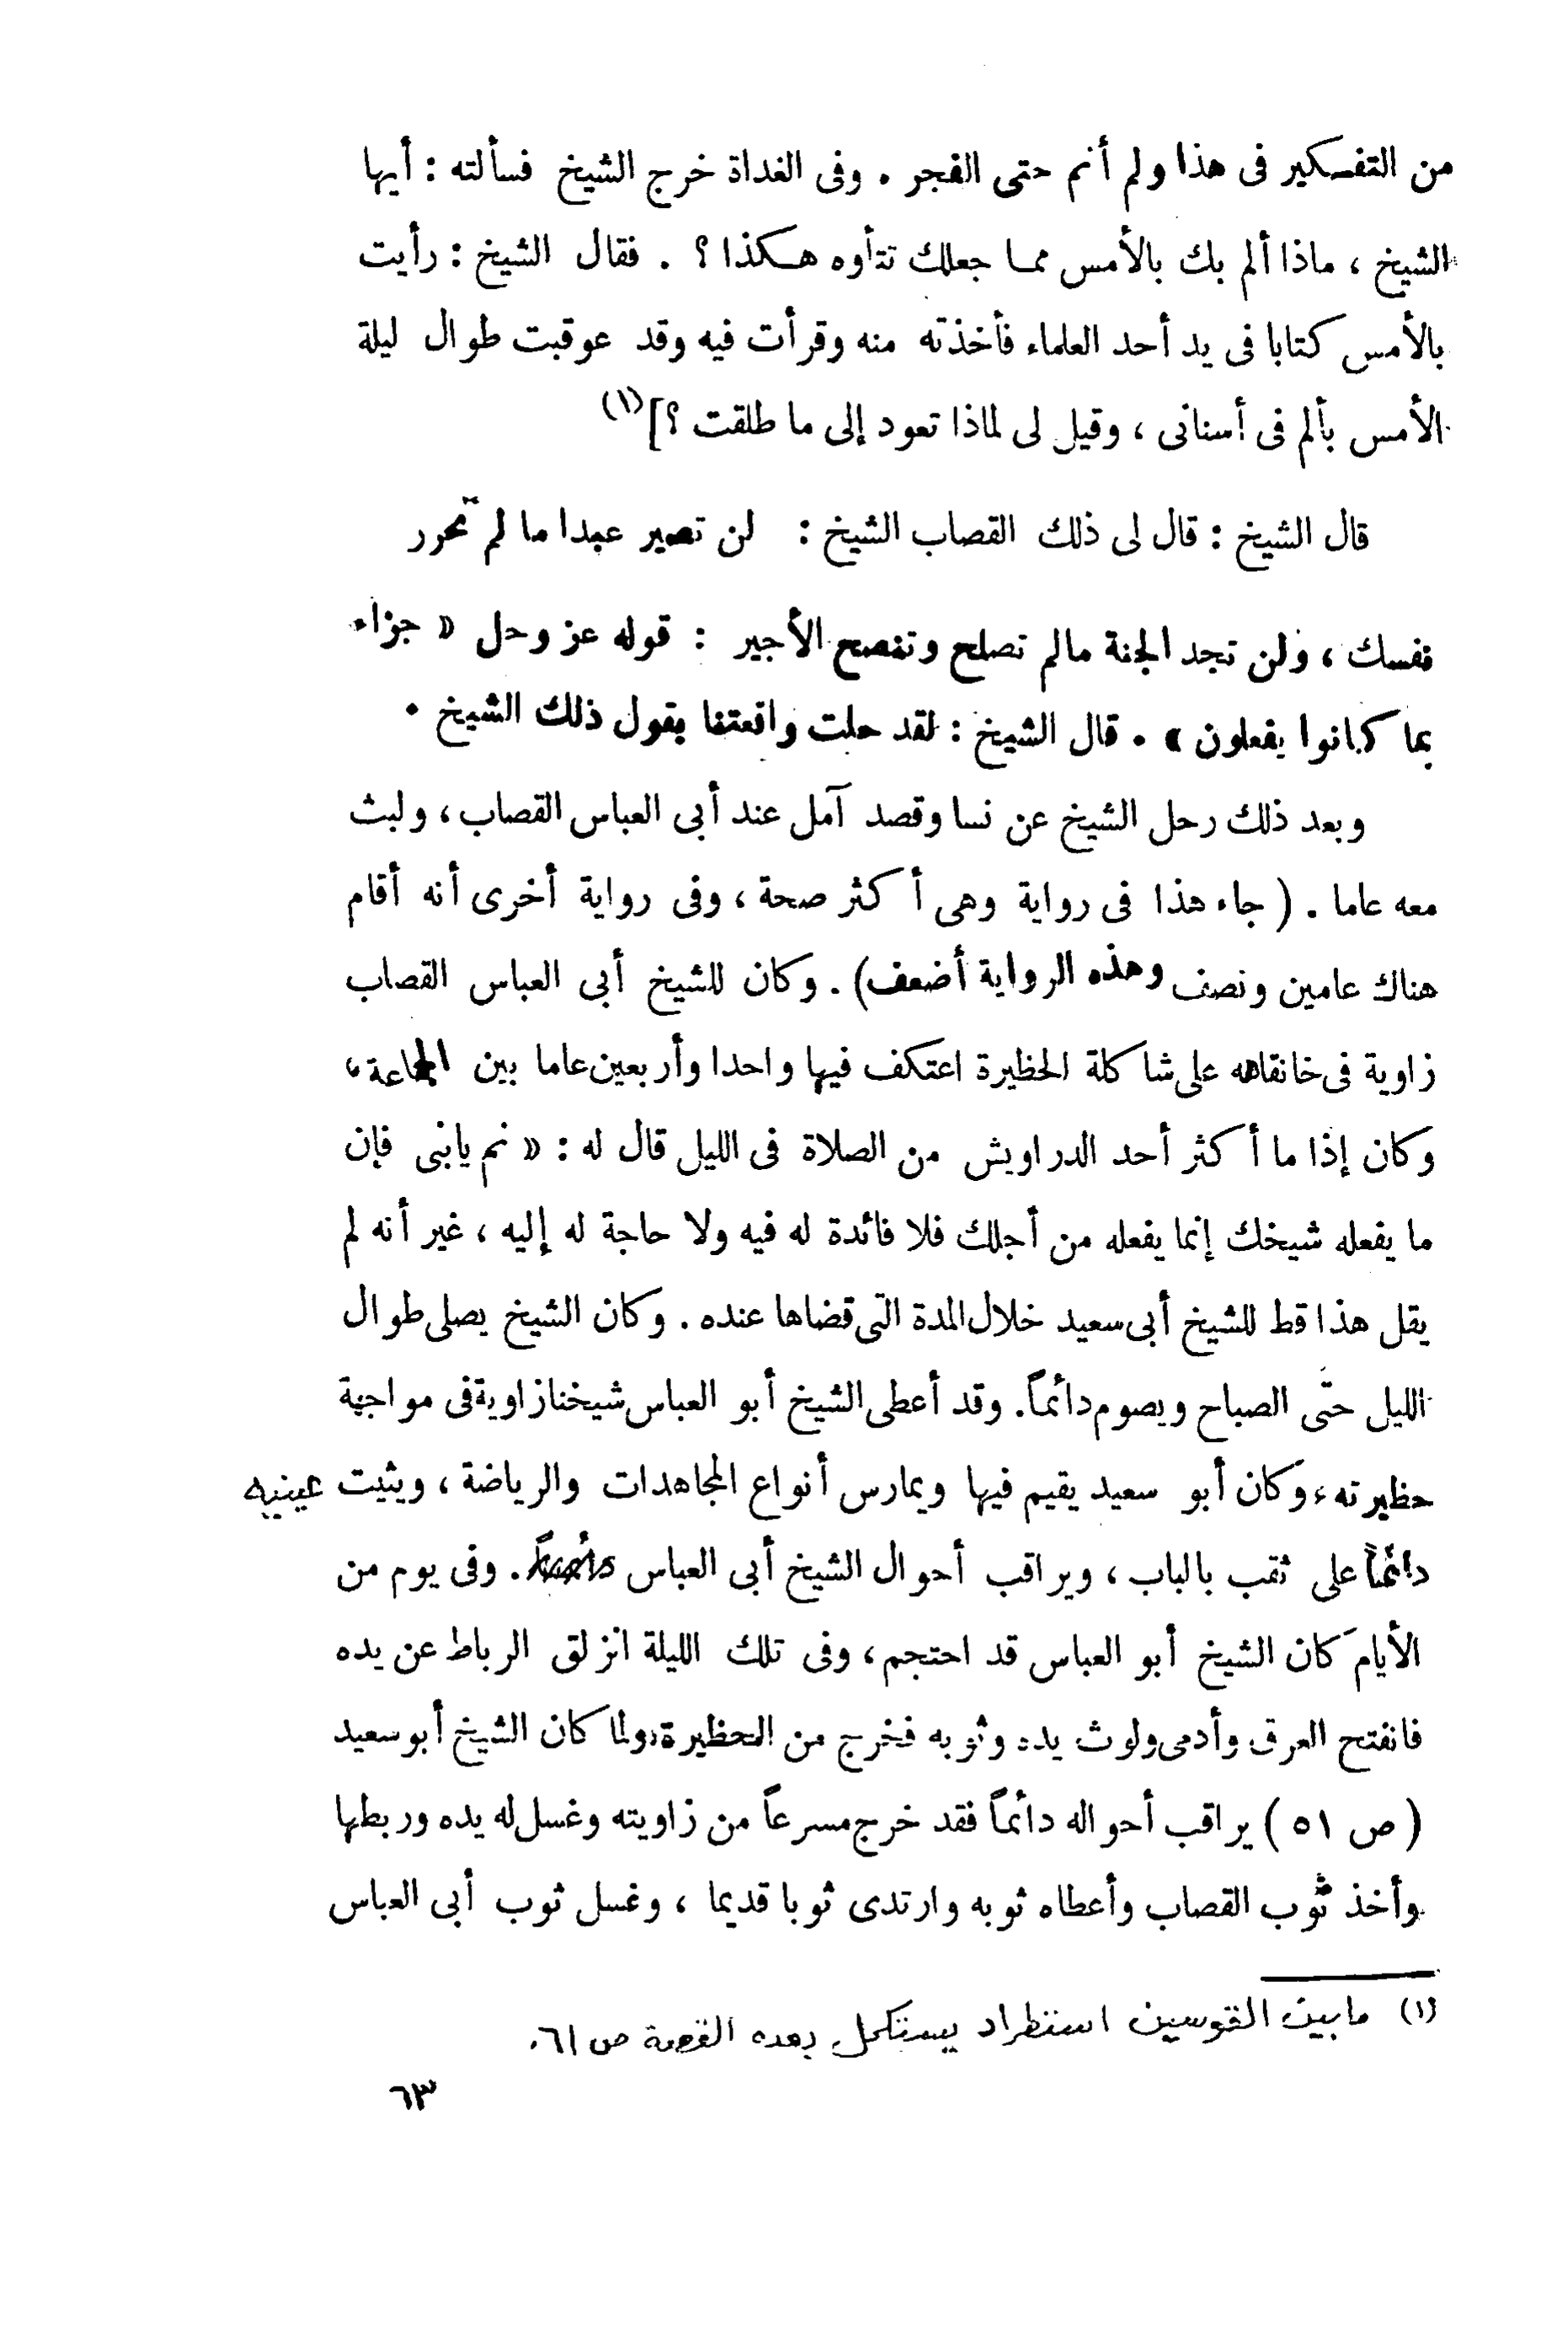 من التفكير فى هذا ولم أنم حتى الفجر . وفى الغداة خرج الشيخ فسألته : أيها
الشيخ ، ماذا ألم بك بالأمس مما جعلك تتأوه هكذا ؟ . فقال الشيخ : رأيت
بالأمس كتابا فى يد أحد العلماء فأخذته منه وقرأت فيه وقد عوقبت طوال ليلة
الأمس بألم فى أسنانى ، وقيل لى لماذا تعود إلى ما طلقت ؟](١)
قال الشيخ : قال لى ذلك القصاب الشيخ : لن تصير عبدا ما لم تحرر
نفسك ، ولن تجد الجنة مالم تصلح وتنصح الأجير : قوله عز وحل « جزاء
بما كانوا يفعلون » . قال الشيخ : لقد حلت واقعتنا بقول ذلك الشيخ .
وبعد ذلك رحل الشيخ عن نسا وقصد آمل عند أبى العباس القصاب ، ولبث
معه عاما . ( جاء هذا فى رواية وهى أكثر صحة ، وفى رواية أخرى أنه أقام
هناك عامين ونصف وهذه الرواية أضعف) . وكان للشيخ أبى العباس القصاب
زاوية فى خانقاهه على شاكلة الحظيرة اعتكف فيها واحدا وأربعين عاما بين الجماعة ،
وكان إذا ما أكثر أحد الدراويش من الصلاة فى الليل قال له : « نم يابنى فإن
ما يفعله شيخك إنما يفعله من أجلك فلا فائدة له فيه ولا حاجة له إليه ، غير أنه لم
يقل هذا قط للشيخ أبى سعيد خلال المدة التى قضاها عنده . وكان الشيخ يصلى طوال
الليل حتّى الصباح ويصوم دائماً. وقد أعطى الشيخ أبو العباس شيخنا زاوية فى مواجهة
حظيرته ، وكان أبو سعيد يقيم فيها ويمارس أنواع المجاهدات والرياضة ، ويثبت عينيه
دائماً على ثقب بالباب ، ويراقب أحوال الشيخ أبى العباس . وفى يوم من
الأيام كان الشيخ أبو العباس قد احتجم ، وفى تلك الليلة انزلق الرباط عن يده
فانفتح العرق وأدمى ولوث يده وثوبه فخرج من الحظيرة ، ولما كان الشيخ أبو سعيد
( ص ٥١ ) يراقب أحواله دائماً فقد خرج مسرعاً من زاويته وغسل له يده وربطها
وأخذ ثوب القصاب وأعطاه ثوبه وارتدى ثوبا قديما ، وغسل ثوب أبى العباس
(١) مابين القوسين استطراد يستكمل بعده القصة ص ٦١.
٦٣